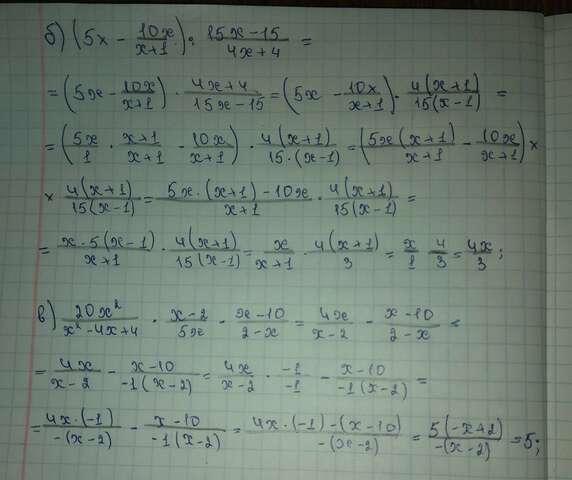 б) (5x - 10x/(x+1)) : (15x-15)/(4x+4) =
= (5x - 10x/(x+1)) · (4x+4)/(15x-15) = (5x - 10x/(x+1)) · 4(x+1)/15(x-1) =
= (5x/1 · (x+1)/(x+1) - 10x/(x+1)) · 4(x+1)/15·(x-1) = (5x(x+1)/(x+1) - 10x/(x+1)) ×
× 4(x+1)/15(x-1) = (5x·(x+1)-10x)/(x+1) · 4(x+1)/15(x-1) =
= x·5(x-1)/(x+1) · 4(x+1)/15(x-1) = x/(x+1) · 4(x+1)/3 = x/1 · 4/3 = 4x/3;
в) 20x²/(x²-4x+4) · (x-2)/5x - (x-10)/(2-x) = 4x/(x-2) - (x-10)/(2-x) =
= 4x/(x-2) - (x-10)/-1(x-2) = 4x/(x-2) · -1/-1 - (x-10)/-1(x-2) =
= 4x·(-1)/-(x-2) - (x-10)/-1(x-2) = (4x·(-1)-(x-10))/-(x-2) = 5(-x+2)/-(x-2) = 5;